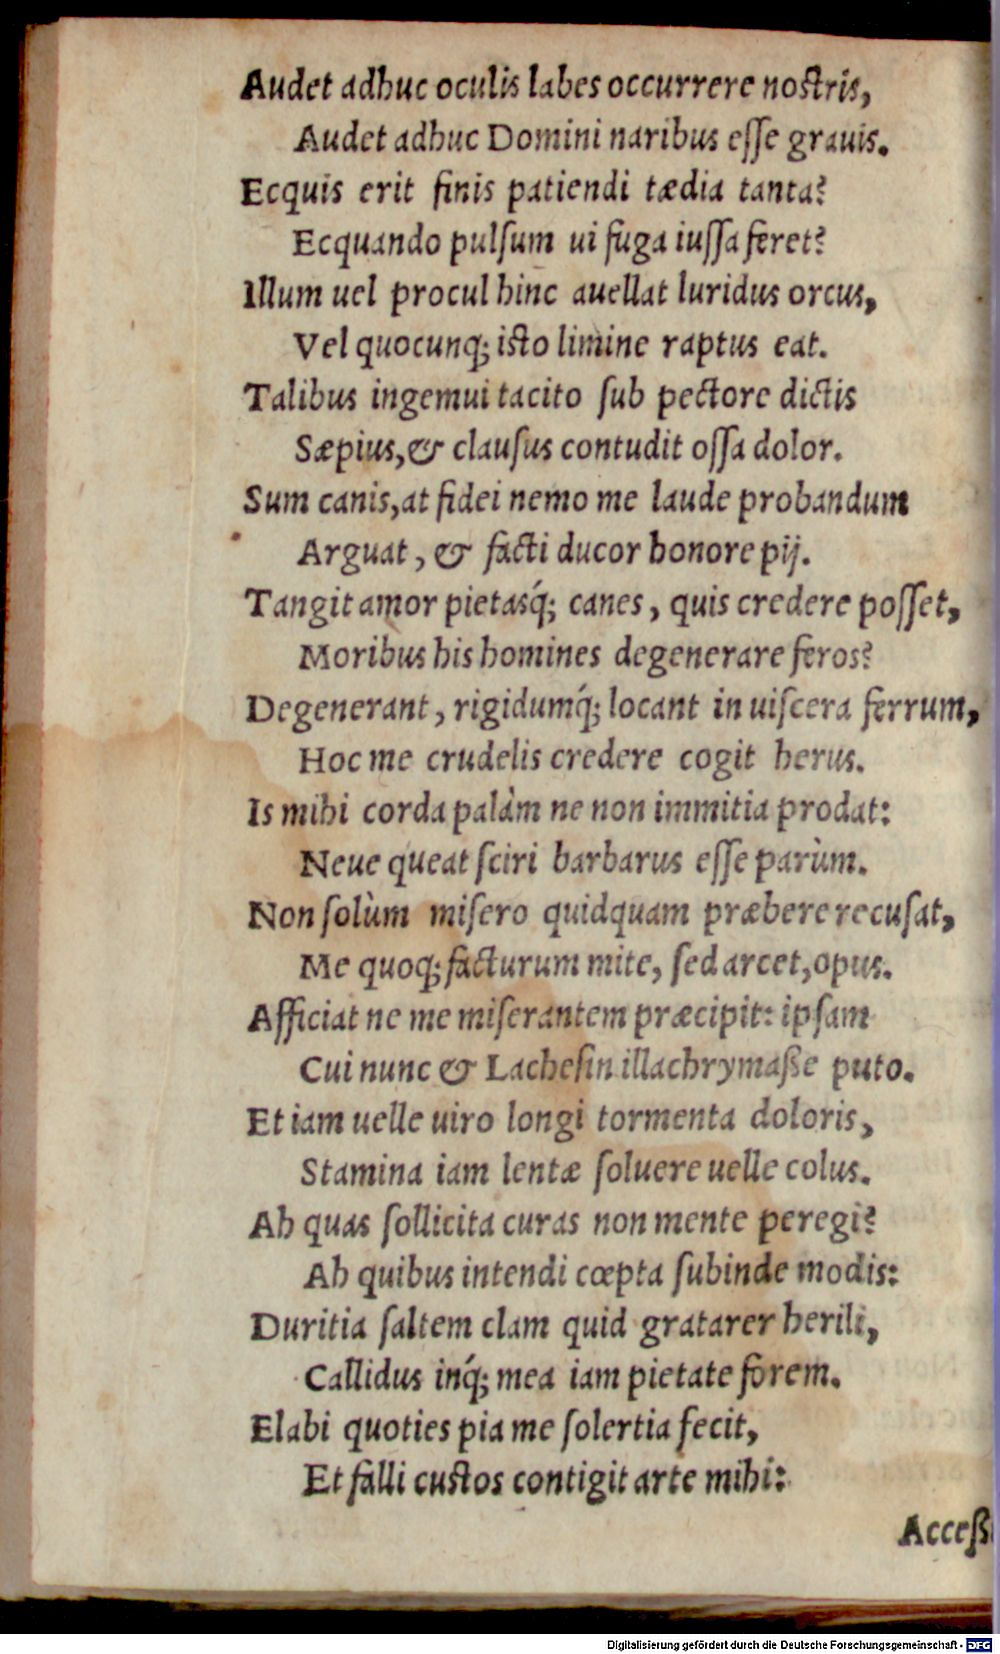 Audet adhuc oculis labes occurrere nostris,
Audet adhuc Domini naribus eſſe grauis.
Ecquis erit finis patiendi tædia tanta?
Ecquando pulſum ui fuga iuſſa feret?
Illum uel procul hinc auellat luridus orcus,
Vel quocunq; isto limine raptus eat.
Talibus ingemui tacito ſub pectore dictis
Sæpius, & clauſus contudit oſſa dolor.
Sum canis, at fidei nemo me laude probandum
Arguat, & facti ducor honore pij.
Tangit amor pietasq́; canes, quis credere poſſet,
Moribus his homines degenerare feros?
Degenerant, rigidumq́; locant in uiſcera ferrum,
Hoc me crudelis credere cogit herus.
Is mihi corda palàm ne non immitia prodat:
Neue queat ſciri barbarus eſſe parùm.
Non ſolùm miſero quidquam præbere recuſat,
Me quoq; facturum mite, ſed arcet, opus.
Afficiat ne me miſerantem præcipit: ipſam
Cui nunc & Lacheſin illachrymaſſe puto.
Et iam uelle uiro longi tormenta doloris,
Stamina iam lentæ ſoluere uelle colus.
Ah quas ſollicita curas non mente peregi?
Ah quibus intendi cœpta ſubinde modis:
Duritia ſaltem clam quid gratarer herili,
Callidus inq́; mea iam pietate forem.
Elabi quoties pia me ſolertia fecit,
Et falli custos contigit arte mihi:
Acceſſ
Digitalisierung gefördert durch die Deutsche Forschungsgemeinschaft - DFG